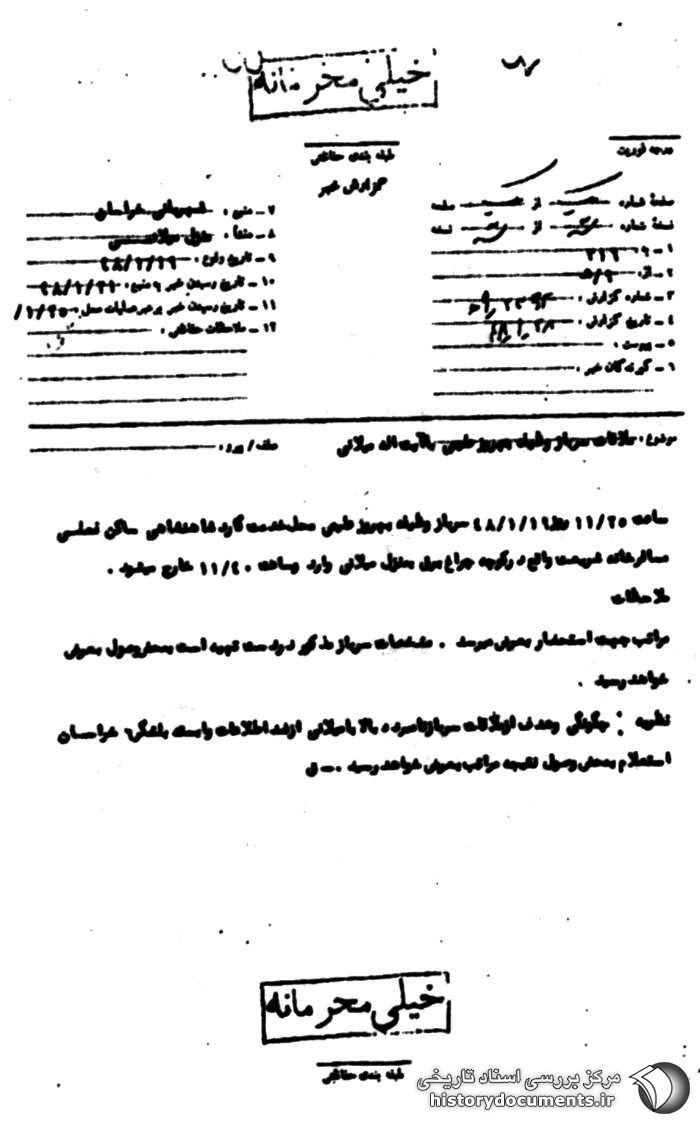 خیلی محرمانه
طبقه بندی حفاظتی
گزارش خبر
درجه فوریت
صفحه شماره از صفحه
نسخه شماره از نسخه
۱ - به ۳۱۶
۲ - از: ۹/ه
۳ - شماره گزارش:
۴ - تاریخ گزارش:
۵ - پیوست:
۶ - گیرندگان خبر:
۷ - منبع: شهربانی خراسان
۸ - منشأ: منزل میلانی
۹ - تاریخ وقوع: ۴۸/۱/۱۹
۱۰ - تاریخ رسیدن خبر به منبع: ۴۸/۱/۲۱
۱۱ - تاریخ رسیدن خبر به رهبر عملیات محل:
۱۲ - ملاحظات حفاظتی:
موضوع: ملاقات سرباز وظیفه بهروز با آیت اله میلانی
عطف / پیرو:
ساعت ۱۱/۲۵ روز ۴۸/۱/۱۹ سرباز وظیفه بهروز محل خدمت گارد شاهنشاهی ساکن فعلی
مسافرخانه شریعت واقع در کوچه چراغ برق بمنزل میلانی وارد و ساعت ۱۱/۴۰ خارج میشود.
ملاحظات
مراتب جهت استحضار بعرض میرسد. مشخصات سرباز مذکور در دست تهیه است بمحض وصول بعرض
خواهد رسید.
نظریه: چگونگی و هدف از ملاقات سرباز نامبرده بالا با میلانی از ضد اطلاعات وابسته بلشگر ۶ خراسان
استعلام بمحض وصول نتیجه مراتب بعرض خواهد رسید. - ق
خیلی محرمانه
طبقه بندی حفاظتی
مرکز بررسی اسناد تاریخی
historydocuments.ir